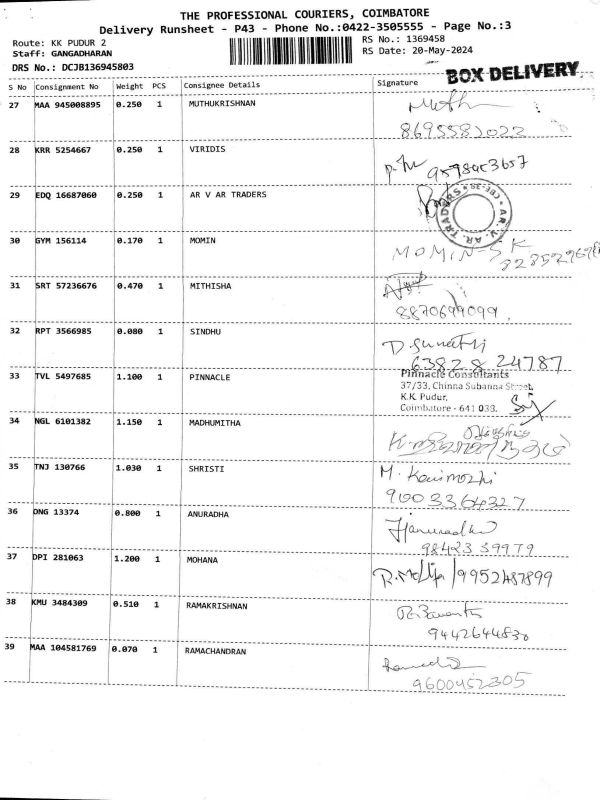 THE PROFESSIONAL COURIERS, COIMBATORE
Delivery Runsheet - P43 - Phone No.:0422-3505555 - Page No.:3
Route: KK PUDUR 2
Staff: GANGADHARAN
DRS No.: DCJB136945803
RS No.: 1369458
RS Date: 20-May-2024
BOX DELIVERY
S No Consignment No Weight PCS Consignee Details Signature
27 MAA 945008895 0.250 1 MUTHUKRISHNAN
28 KRR 5254667 0.250 1 VIRIDIS
29 EDQ 16687060 0.250 1 AR V AR TRADERS
AR. V. AR. TRADERS CBE-38
30 GYM 156114 0.170 1 MOMIN MOMIN-S K
31 SRT 57236676 0.470 1 MITHISHA
8870699099
32 RPT 3566985 0.080 1 SINDHU
63828 24787
33 TVL 5497685 1.100 1 PINNACLE
Pinnacle Consultants
37/33, Chinna Subanna Street,
K.K. Pudur,
Coimbatore - 641 038.
34 NGL 6101382 1.150 1 MADHUMITHA
35 TNJ 130766 1.030 1 SHRISTI
M. Kanimozhi
9003364327
36 ONG 13374 0.800 1 ANURADHA
98423 39979
37 DPI 281063 1.200 1 MOHANA
9952487899
38 KMU 3484309 0.510 1 RAMAKRISHNAN
9442644830
39 MAA 104581769 0.070 1 RAMACHANDRAN
9600452305